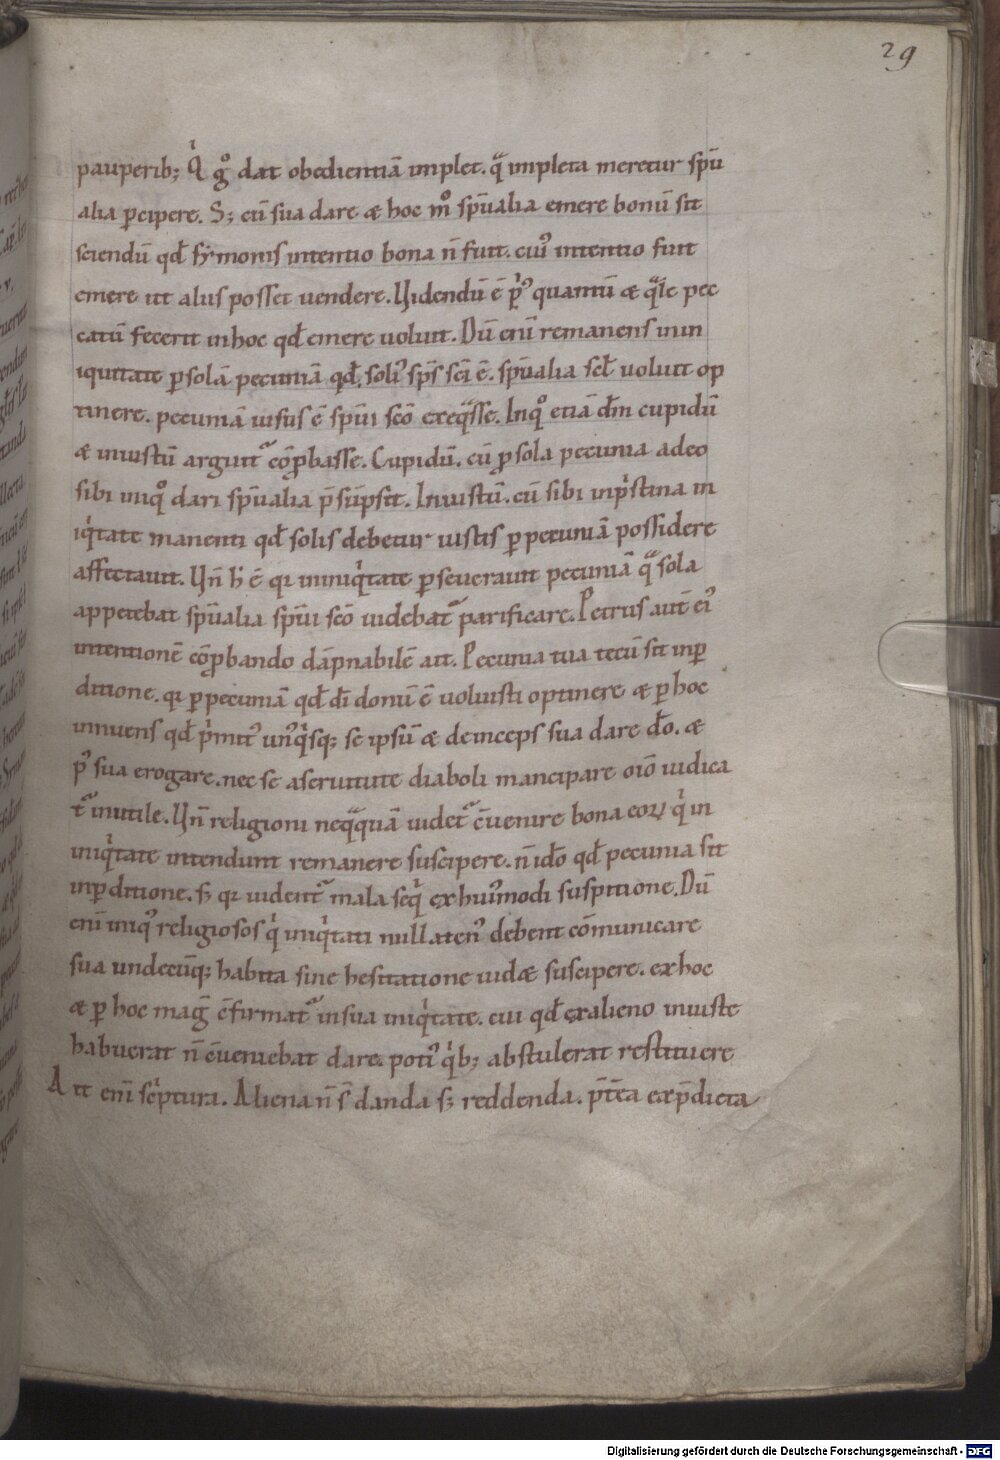 29
pauperib; Qͥ gͦ dat obedientiā implet. qᷓ impleta meretur spū
alia ꝑcipere. S; cū sua dare & hoc mͦ spūalia emere bonū sit
sciendū qđ sẏmonis intentio bona n̄ fuit. cuiꝰ intentio fuit
emere ut aliis posset uendere. Uidendū ē pͥꝰ quantū & qᷓle pec
catū fecerit in hoc qđ emere uoluit. Dū eni remanens in in
iquitate ꝑ solā pecuniā qđ soliꝰ sp̄s sc̄i ē. spūalia scł uoluit op
tinere. pecuniā uisus ē spūi sc̄o exeqᷓsse. Inqͦ etiā dm̄ cupidū
& iniustū arguit᷒ cōꝓbasse. Cupidū. cū ꝓ sola pecunia adeo
sibi iniqͦ dari spūalia p̄sūpsit. Iniustū. cū sibi in pͥstina in
iqͥtate manenti qđ solis debetur iustis ꝑ pecuniā possidere
affectauit. Un̄ h̄ ē qi in iniqͥtate ꝑseuerauit pecuniā qᷓ sola
appetebat spūalia spūi sc̄o uidebat᷒ parificare. Petrus aut̄ eiꝰ
intentionē cōꝓbando dāpnabilē ait. Pecunia tua tecū sit in ꝑ
ditione. qi ꝑ pecuniā qđ dī donū ē uoluisti optinere & ꝑ hoc
innuens qđ pͥmitꝰ unꝰqͥsq; se ipsū & deinceps sua dare do. &
pꝰ sua erogare. nec se a seruitute diaboli mancipare oīo iudica
t᷒ inutile. Un̄ religioni neqᷓquā uidet᷒ c̄uenire bona eoꝝ qͥ in
iniqͥtate intendunt remanere suscipere. n̄ ido qđ pecunia sit
in ꝑditione. s; qi uident᷒ mala seqͥ ex huiꝰmodi suspitione. Dū
eni iniqꝰ religiosos qͥ iniqͥtati nullatenꝰ debent cōmunicare
sua undecūq; habita sine hesitatione uid& suscipere. ex hoc
& ꝑ hoc mag̅ c̄firmat᷒ in sua iniqͥtate. cui qđ ex alieno iniuste
habuerat n̄ c̄ueniebat dare. potiꝰ qͥb; abstulerat restituere
Ait eni scͥptura. Aliena n̄ s̄ danda s; reddenda. p̄tea ex p̄dicta
Digitalisierung gefördert durch die Deutsche Forschungsgemeinschaft - DFG